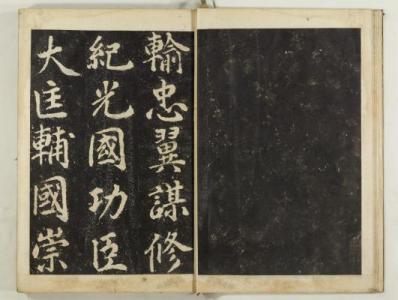 輸忠翼謀修
紀光國功臣
大匡輔國崇